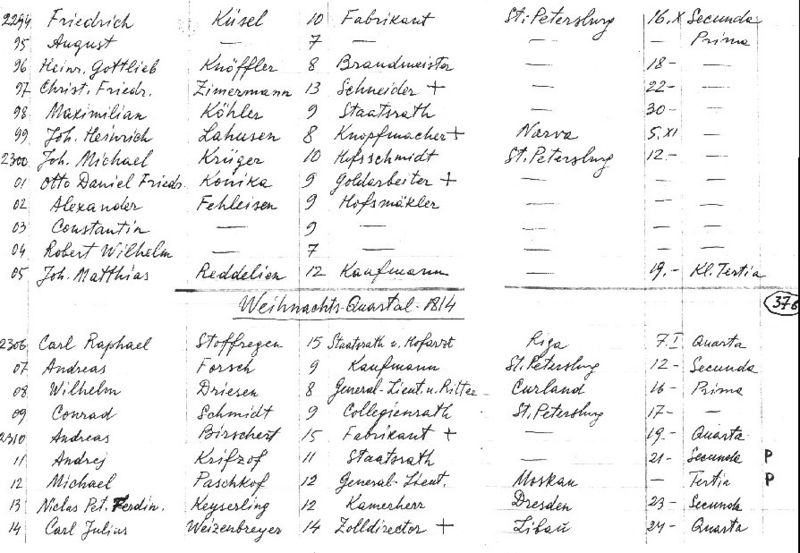 2294 Friedrich Küsel 10 Fabrikant St. Petersburg 16.X Secunda
95 August — 7 — — Prima
96 Heinr. Gottlieb Knöffler 8 Brandmeister — 18 - —
97 Christ. Friedr. Zimermann 13 Schneider + — 22 - —
98 Maximilian Köhler 9 Staatsrath — 30 - —
99 Joh. Heinrich Lahusen 8 Knopfmacher + Narva 5.XI —
2300 Joh. Michael Krüger 10 Hufsschmidt St. Petersburg 12.- —
01 Otto Daniel Friedr. Konika 9 Goldarbeiter + — —
02 Alexander Fehleisen 9 Hofsmäkler — —
03 Constantin — 9 — — —
04 Robert Wilhelm — 7 — — —
05 Joh. Matthias Reddelien 12 Kaufmann — 19.- Kl. Tertia
Weihnachts-Quartal-1814 376
2306 Carl Raphael Stoffregen 15 Staatsrath u. Hofarzt Riga 7.I Quarta
07 Andreas Forsch 9 Kaufmann St. Petersburg 12 - Secunda
08 Wilhelm Driesen 8 General-Lieut. u. Ritter Curland 16 - Prima
09 Conrad Schmidt 9 Collegienrath St. Petersburg 17 - —
2310 Andreas Birschert 15 Fabrikant + — 19 - Quarta
11 Andrej Krifzof 11 Staatsrath — 21 - Secunda P
12 Michael Paschkof 12 General-Lieut. Moskau — Tertia P
13 Niclas Pet. Ferdin. Keyserling 12 Kamerherr Dresden 23 - Secunda
14 Carl Julius Weizenbreyer 14 Zolldirector + Libau 24 - Quarta